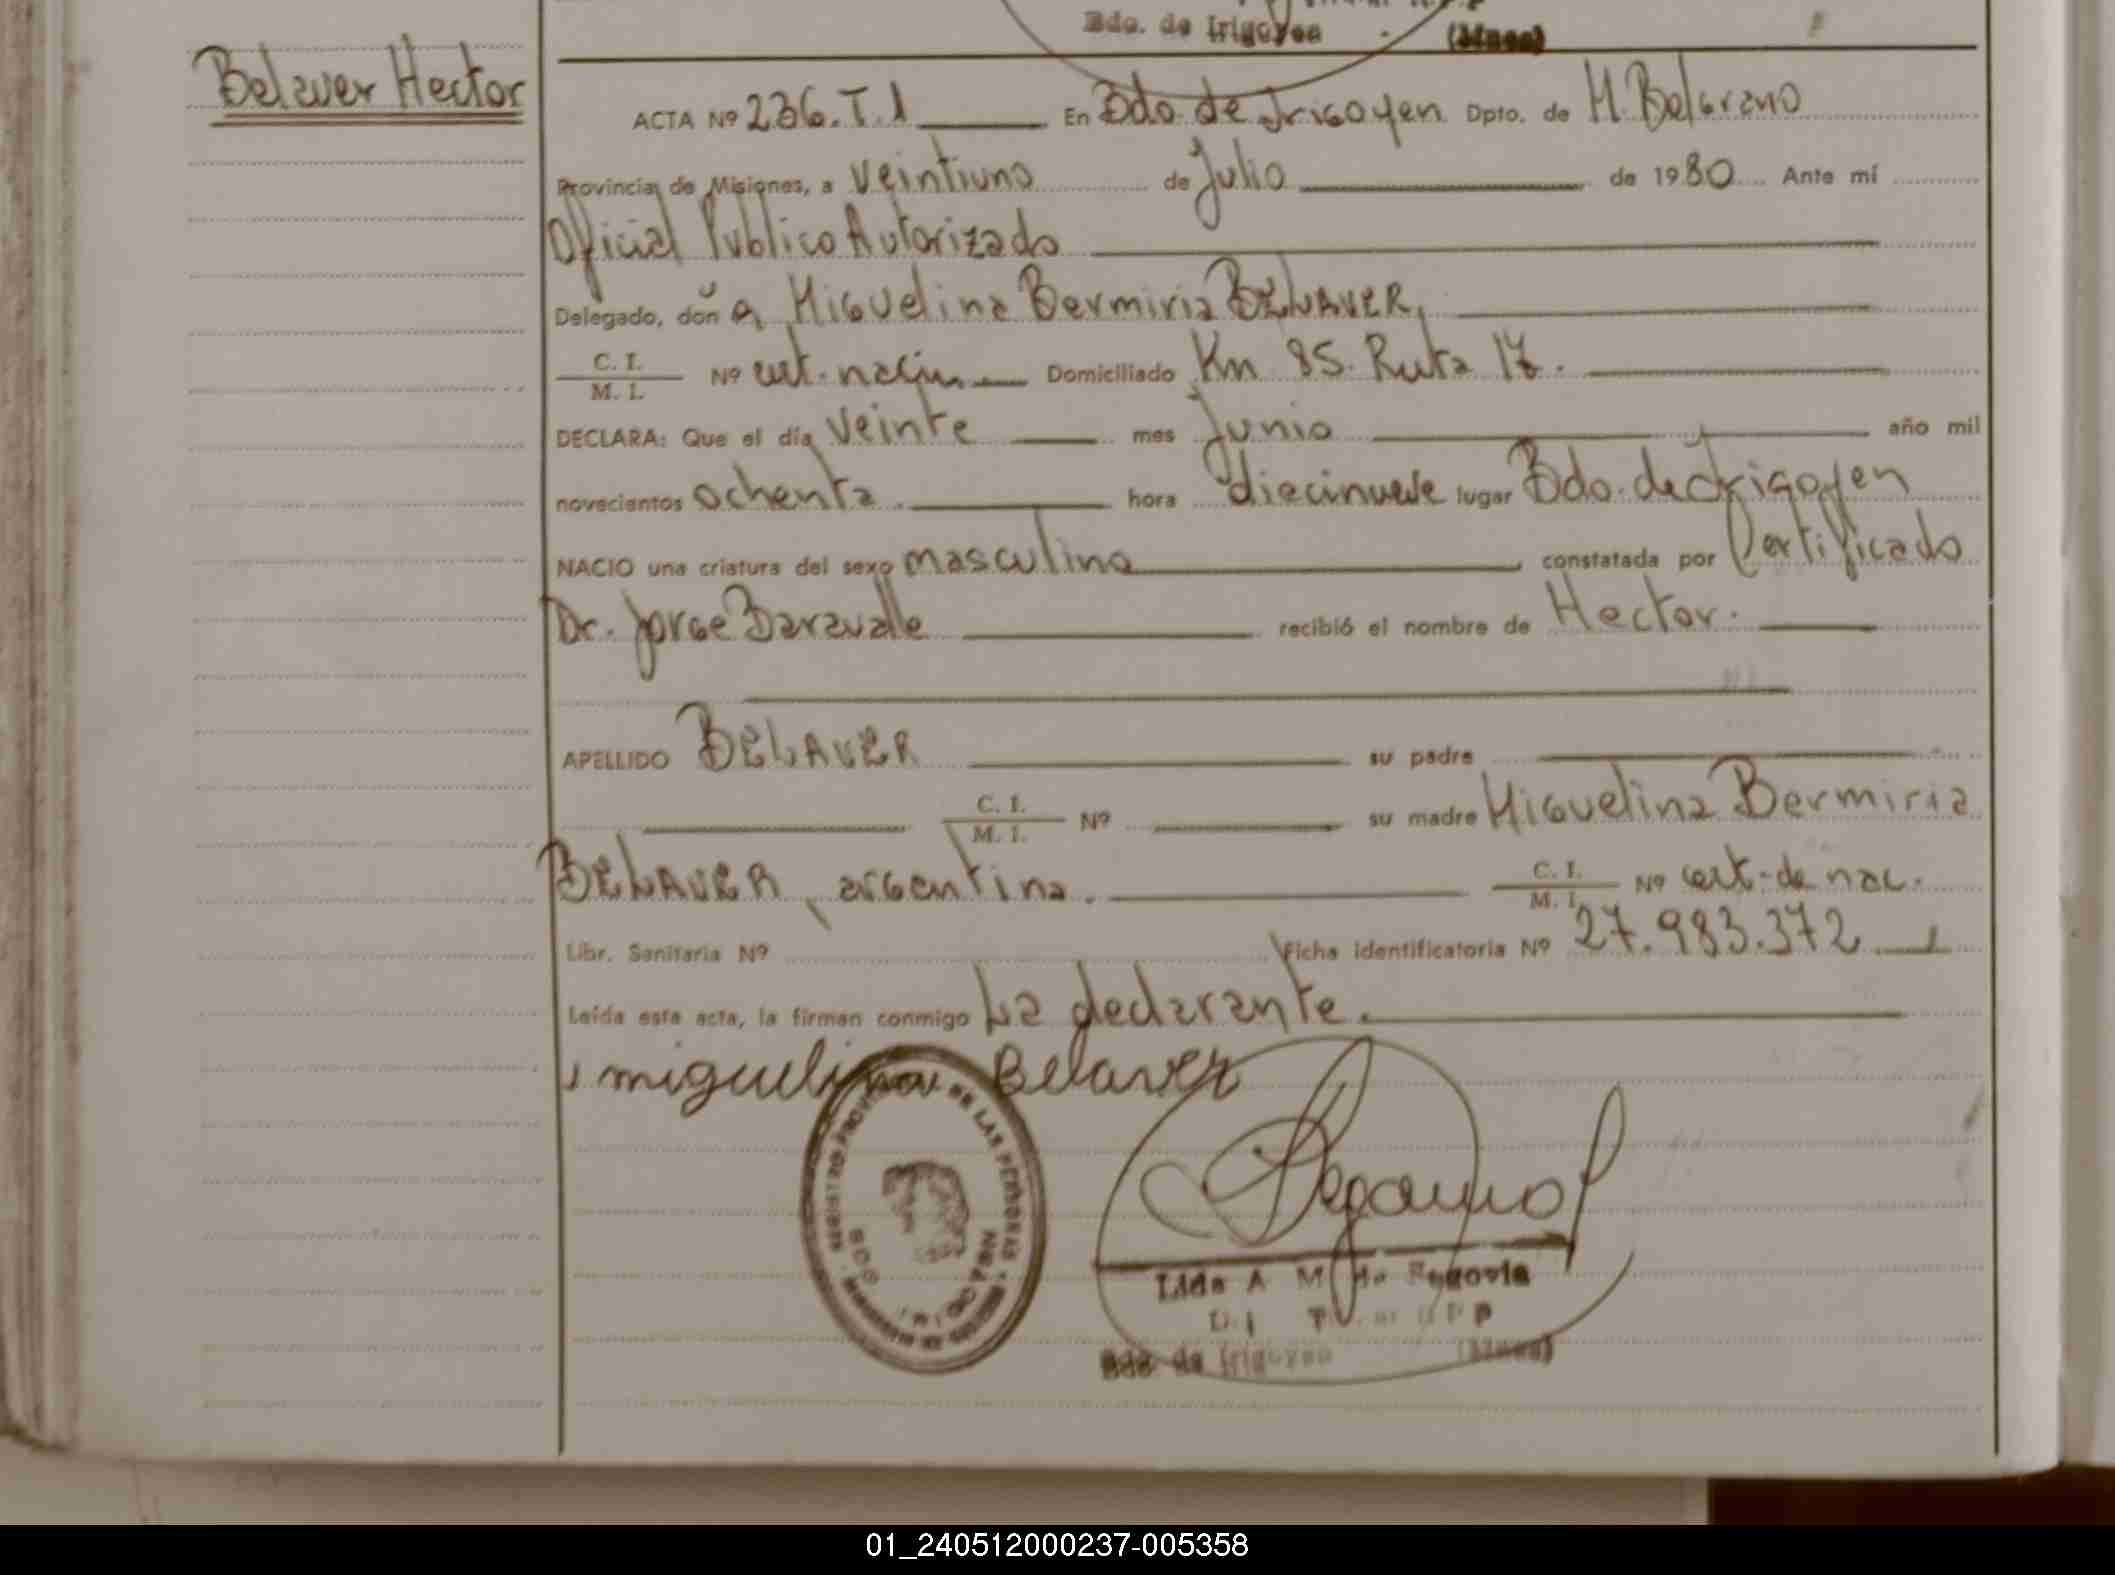 Bdo. de Irigoyen (Mnes)
Belaver Hector
ACTA Nº 236.T.1 En Bdo. de Irigoyen Dpto. de M. Belgrano
Provincia de Misiones, a veintiuno de Julio de 1980 Ante mí
Oficial Publico Autorizado
Delegado, doña Miguelina Bermiria BELAVER,
C. I.
M. I. Nº cert. nacim. Domiciliado Km 85. Ruta 17.
DECLARA: Que el día veinte mes Junio año mil
novecientos ochenta. hora diecinueve lugar Bdo. de Irigoyen
NACIO una criatura del sexo masculino constatada por Certificado
Dr. Jorge Baravalle recibió el nombre de Hector.
APELLIDO BELAVER su padre
C. I.
M. I. Nº su madre Miguelina Bermiria
BELAVER, argentina. C. I.
M. I. Nº cert. de nac.
Libr. Sanitaria Nº Ficha identificatoria Nº 27.983.372
Leída esta acta, la firman conmigo La declarante.
miguelina Belaver
REGISTRO PROVINCIAL DE LAS PERSONAS
BDO. IRIGOYEN
Lida A M de Segovia
Bdo. de Irigoyen (Mnes)
01_240512000237-005358